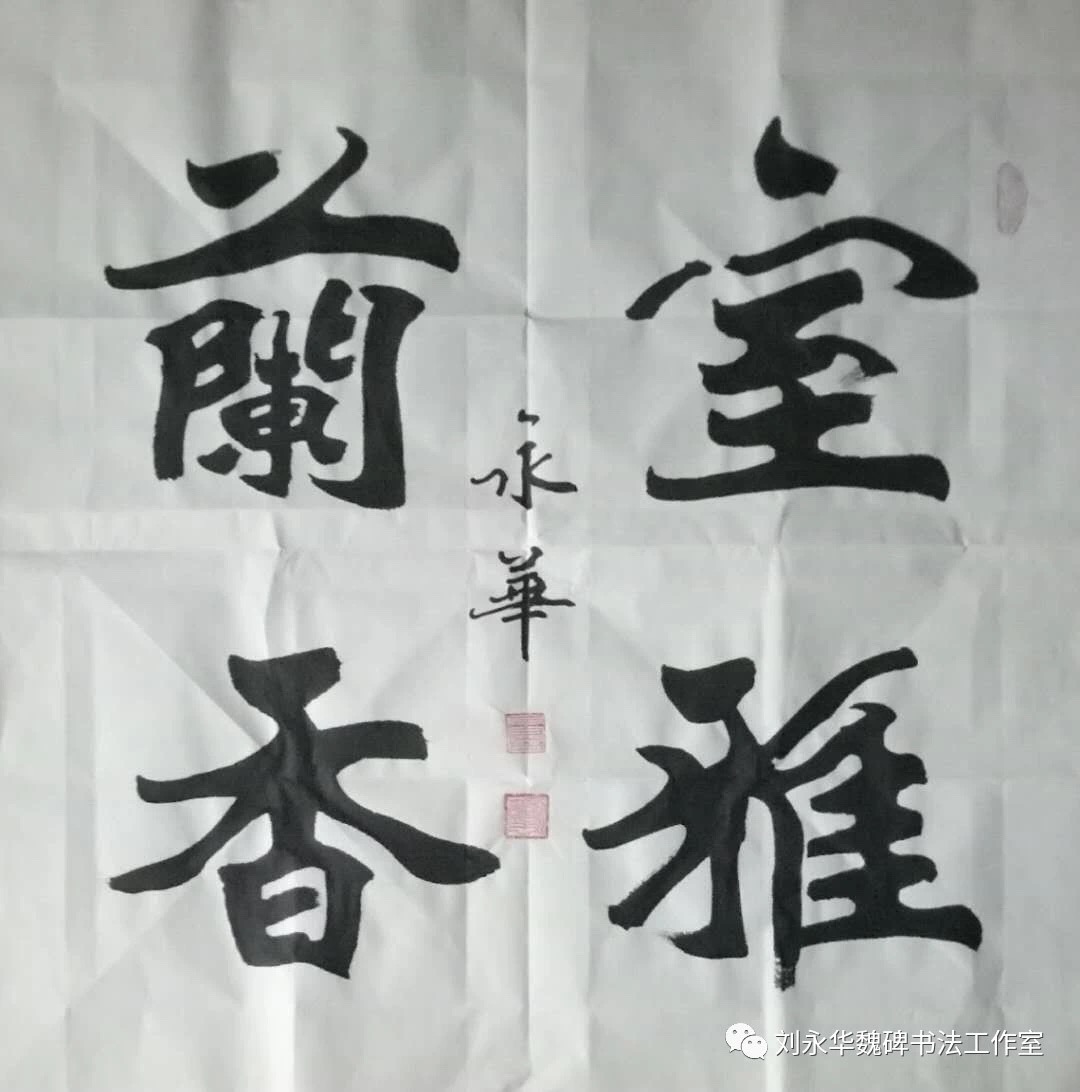 室雅
蘭香
永華
刘永华魏碑书法工作室